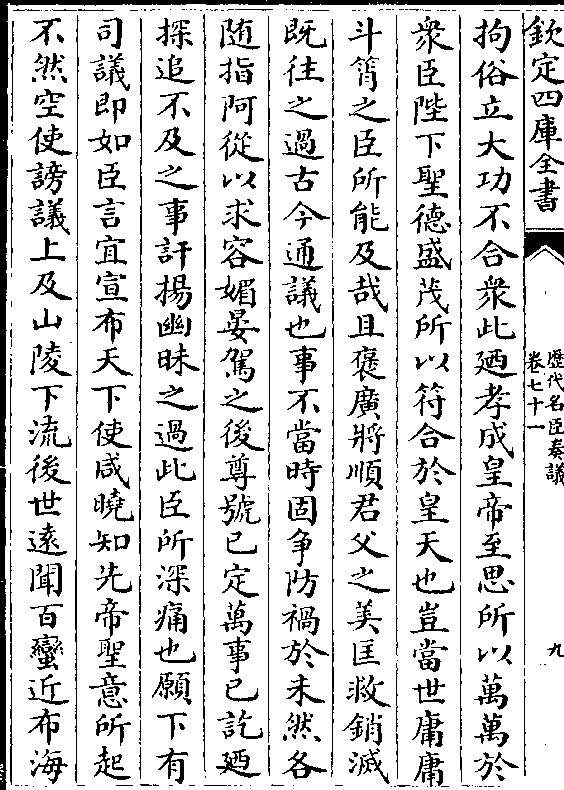 欽定四庫全書
歴代名臣奏議
卷七十一
九
拘俗立大功不合衆此廼孝成皇帝至思所以萬萬於
衆臣陛下聖德盛茂所以符合於皇天也豈當世庸庸
斗筲之臣所能及哉且褒廣將順君父之美匡救銷滅
既往之過古今通議也事不當時固争防禍於未然各
随指阿從以求容媚晏駕之後尊號已定萬事已訖廼
探追不及之事訐揚幽昧之過此臣所深痛也願下有
司議即如臣言宜宣布天下使咸曉知先帝聖意所起
不然空使謗議上及山陵下流後世逺聞百蠻近布海